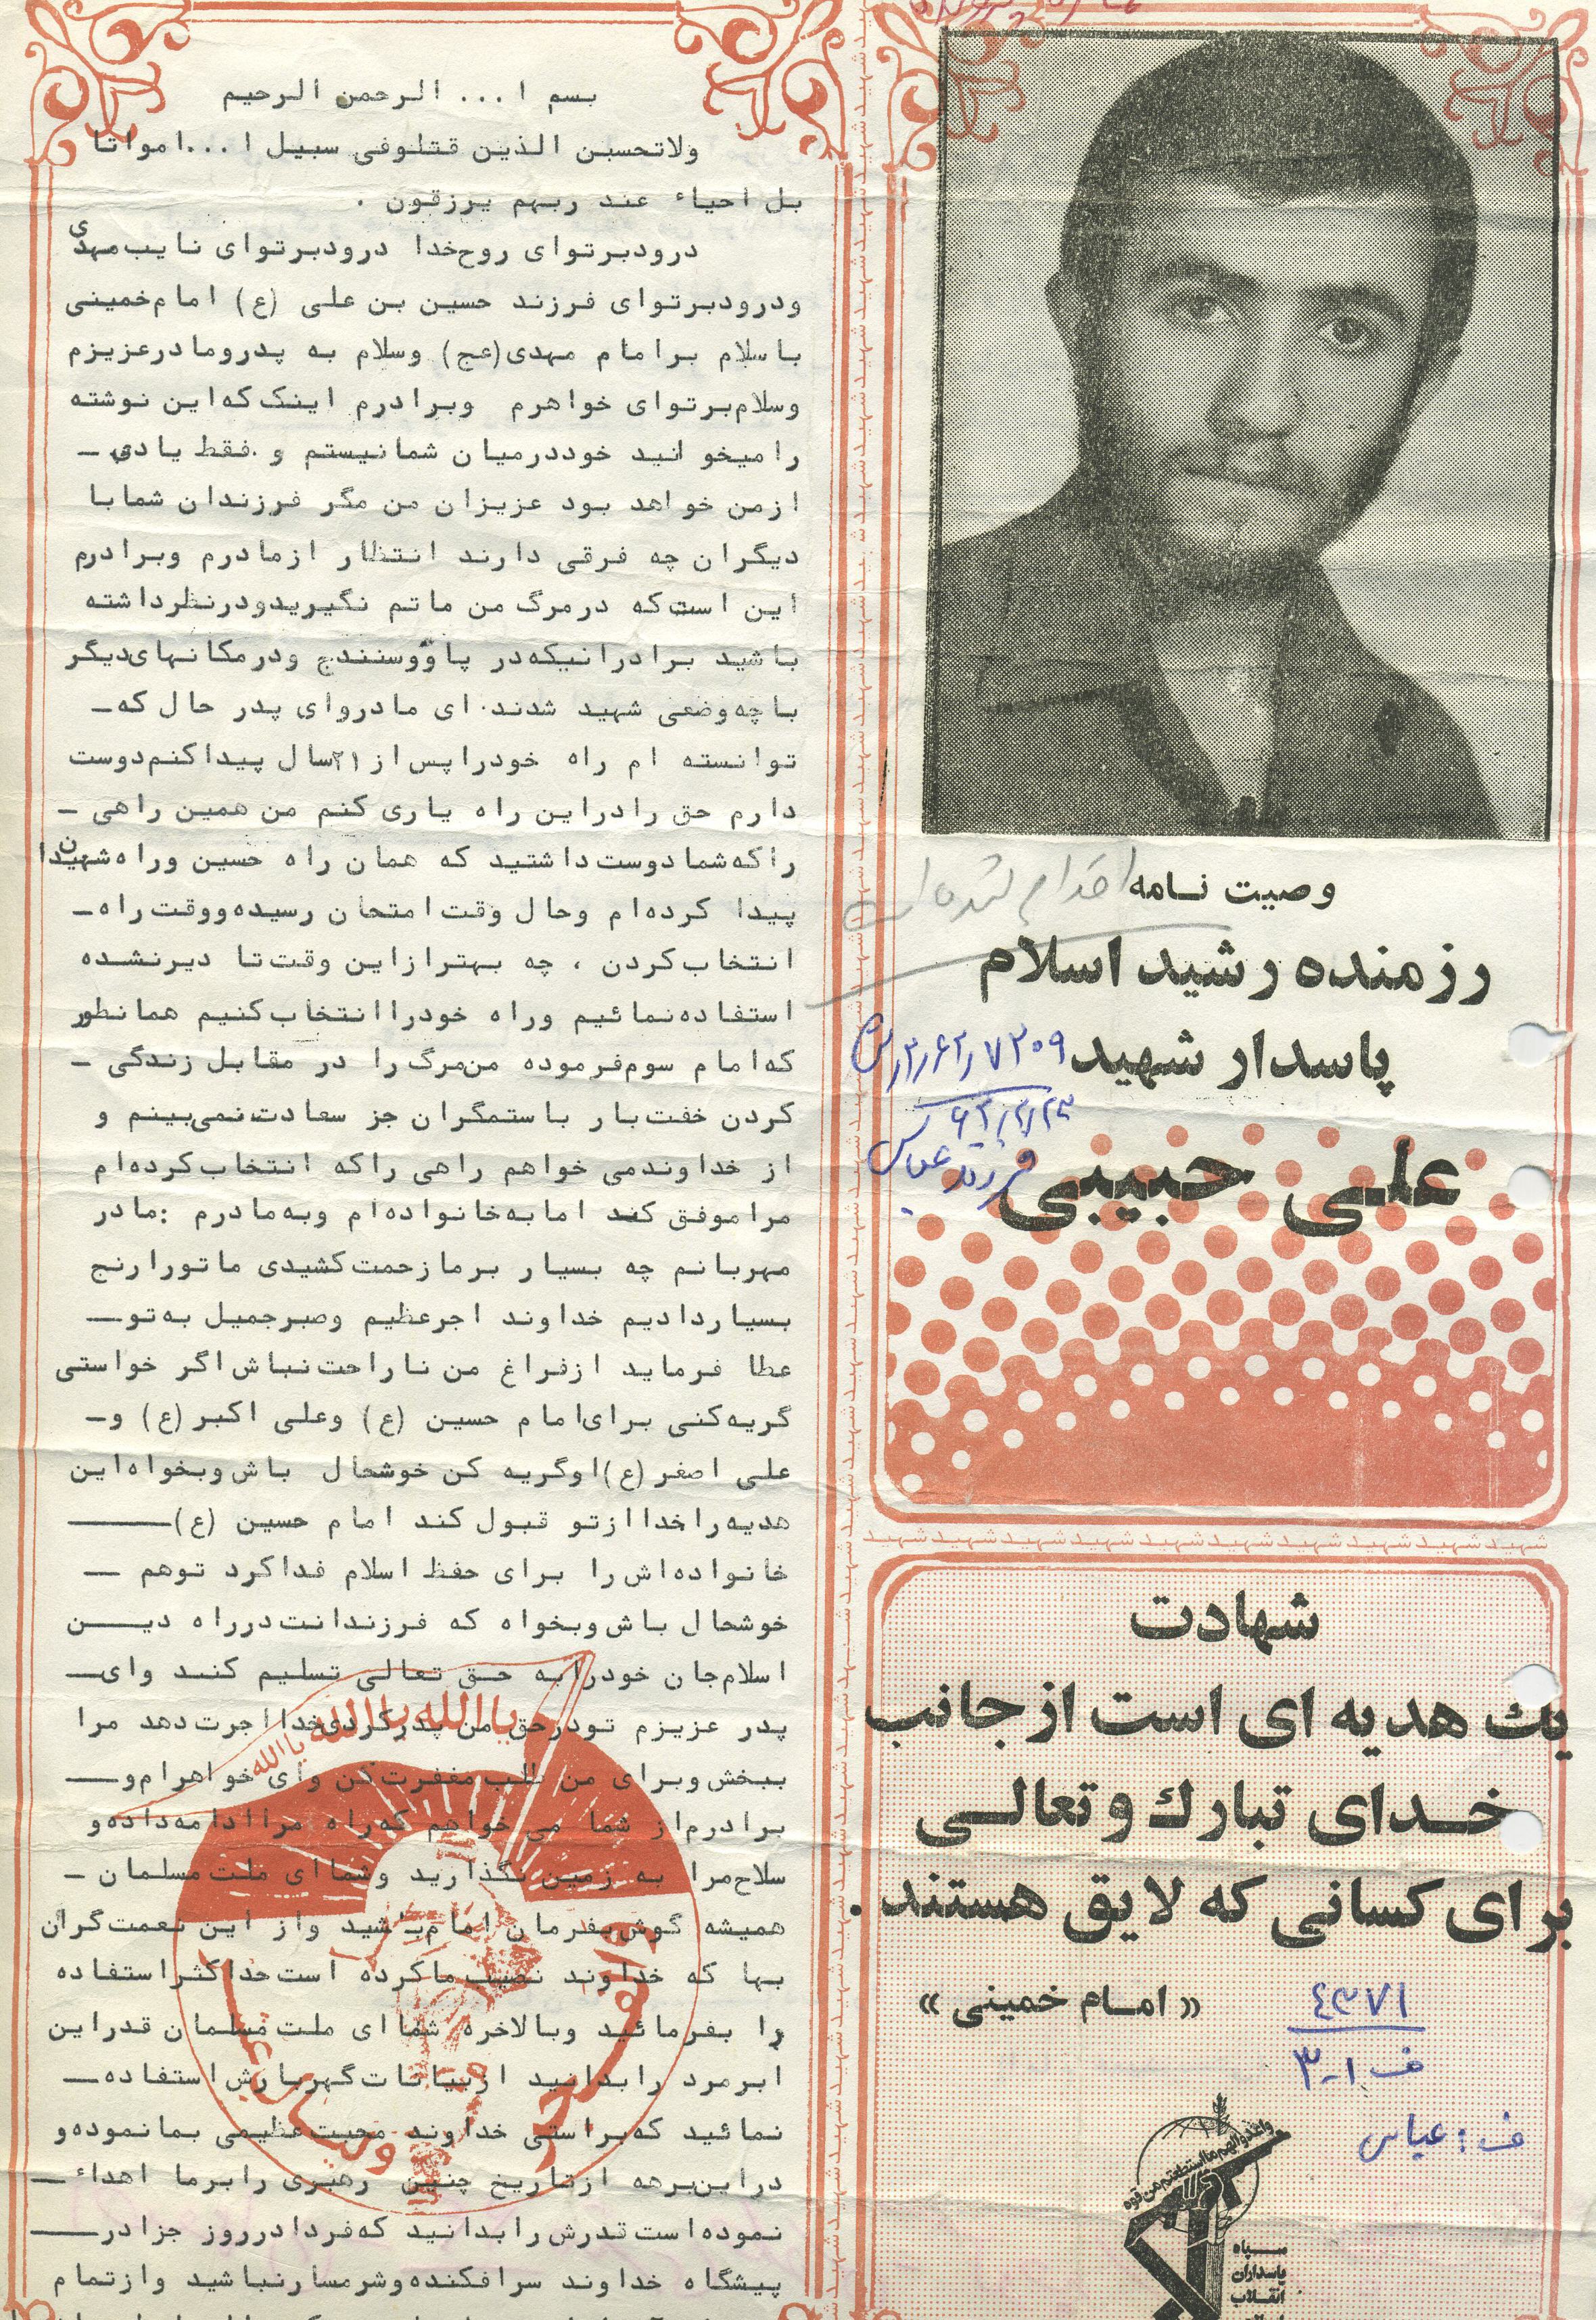 وصیت نامه
اقدام شده است
رزمنده رشید اسلام
پاسدار شهید
علی حبیبی
فرزند عباس
شهید شهید شهید شهید شهید شهید شهید شهید شهید شهید
شهادت
یك هدیه ای است از جانب
خدای تبارك وتعالی
برای کسانی که لایق هستند.
«امام خمینی»
٤٣٧١
ف ١-٣
ف: عباس
واعدوا لهم ما استطعتم من قوة
سپاه
پاسداران
انقلاب
بسم ا... الرحمن الرحیم
ولاتحسبن الذین قتلوفی سبیل ا...امواتا
بل احیاء عند ربهم یرزقون .
درودبرتوای روح‌خدا درودبرتوای نایب‌مهدی
ودرودبرتوای فرزند حسین بن علی (ع) امام‌خمینی
باسلام برامام مهدی(عج) وسلام به پدرومادرعزیزم
وسلام‌برتوای خواهرم وبرادرم اینک‌که‌این نوشته
رامیخوانید خوددرمیان شمانیستم و فقط یادی ـ
ازمن خواهد بود عزیزان من مگر فرزندان شمابا
دیگران چه فرقی دارند انتظار ازمادرم وبرادرم
این است‌که درمرگ من ماتم نگیریدودرنظرداشته
باشید برادرانیکه‌در پاووسنندج ودرمکانهای‌دیگر
باچه‌وضعی شهید شدند. ای مادروای پدر حال که‌ـ
توانسته ام راه خودراپس‌از ۲۱سال پیداکنم‌دوست
دارم حق رادراین راه یاری کنم من همین راهی ـ
راکه‌شمادوست‌داشتید که همان راه حسین وراه‌شهیدان
پیدا کرده‌ام وحال وقت‌امتحان رسیده‌ووقت‌راه‌ـ
انتخاب‌کردن ، چه بهترازاین وقت‌تا دیرنشده
استفاده‌نمائیم وراه خودراانتخاب‌کنیم همانطور
که‌امام سوم‌فرموده من‌مرگ را در مقابل زندگی ـ
کردن خفت‌بار باستمگران جز سعادت‌نمی‌بینم و
از خداوندمی خواهم راهی راکه انتخاب‌کرده‌ام
مراموفق کند امابه‌خانواده‌ام وبه‌مادرم :مادر
مهربانم چه بسیار برمازحمت‌کشیدی ماتورارنج
بسیاردادیم خداوند اجرعظیم وصبرجمیل به‌توـ
عطا فرماید ازفراغ من ناراحت‌نباش‌اگر خواستی
گریه‌کنی برای‌امام حسین (ع) وعلی اکبر(ع) وـ
علی اصغر(ع)اوگریه کن خوشحال باش‌وبخواه‌این
هدیه‌راخداازتو قبول کند امام حسین (ع)ـ
خانواده‌اش‌را برای حفظ اسلام فداکرد توهم ـ
خوشحال باش‌وبخواه که فرزندانت‌درراه دیـن
اسلام‌جان خودرابه حق تعالی تسلیم کند وای‌ـ
پدر عزیزم تودرحق‌من‌پدرکردی‌خدااجرت‌دهد مرا
ببخش‌وبرای من طلب‌مغفرت‌کن وای خواهرام‌وـ
برادرم‌از شما می خواهم که‌راه مراادامه‌داده‌و
سلاح‌مرا به زمین‌نگذارید وشماای ملت‌مسلمان ـ
همیشه گوش‌بفرمان امام‌باشید واز این نعمت‌گران
بها که خداوند نصیب‌ماکرده است‌حداکثراستفاده
را بفرمائید وبالاخره شماای ملت‌مسلمان قدراین
ابرمرد رابدانید ازبیانات‌گهربارش‌استفاده‌ـ
نمائید که‌براستی خداوند محبت‌عظیمی بمانموده‌و
دراین‌برهه ازتاریخ چنین رهبری رابرما اهداء‌ـ
نموده‌است‌قدرش‌رابدانید که‌فردادرروز جزادرـ
پیشگاه خداوند سرافکنده‌وشرمسارنباشید وازتمام
یاالله یاالله یاالله